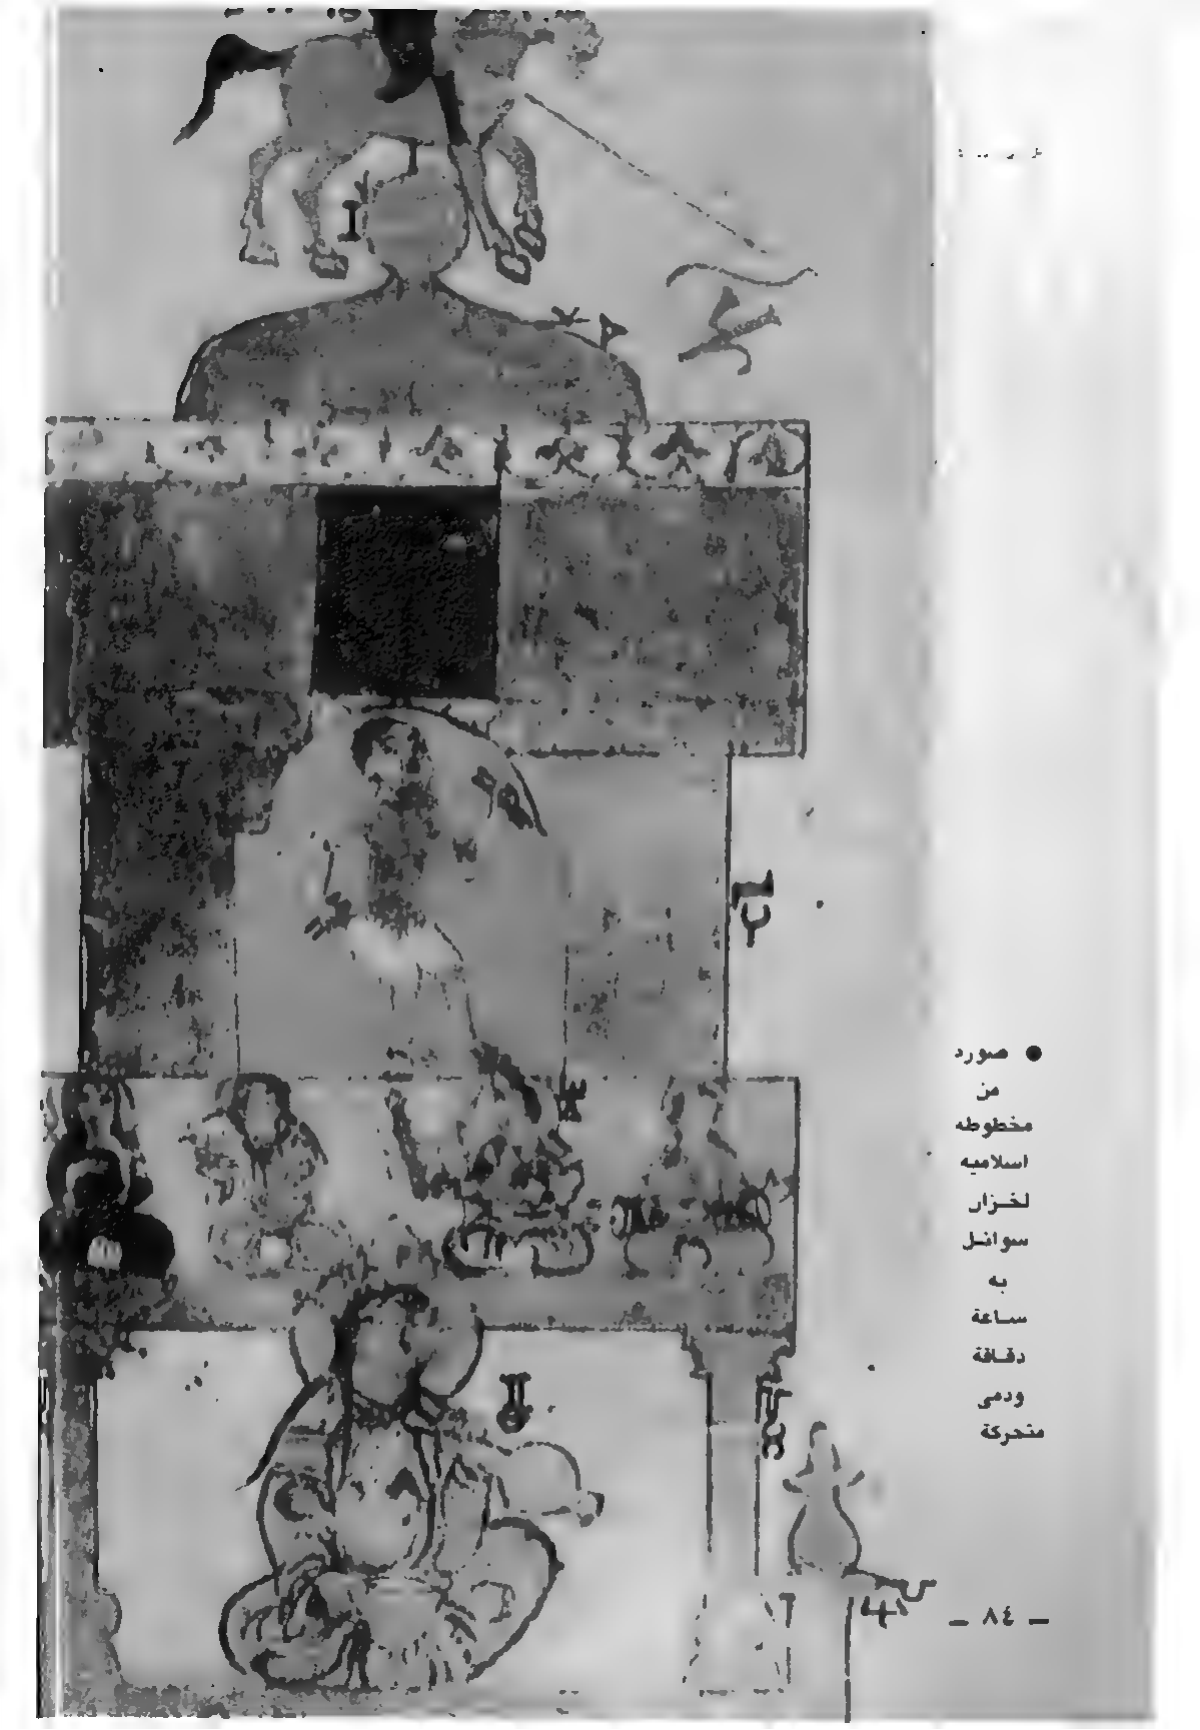 ● صورد
من
مخطوطه
اسلاميه
لخزان
سوائل
به
ساعة
دقاقة
ودمى
متحركة
– ٨٤ –